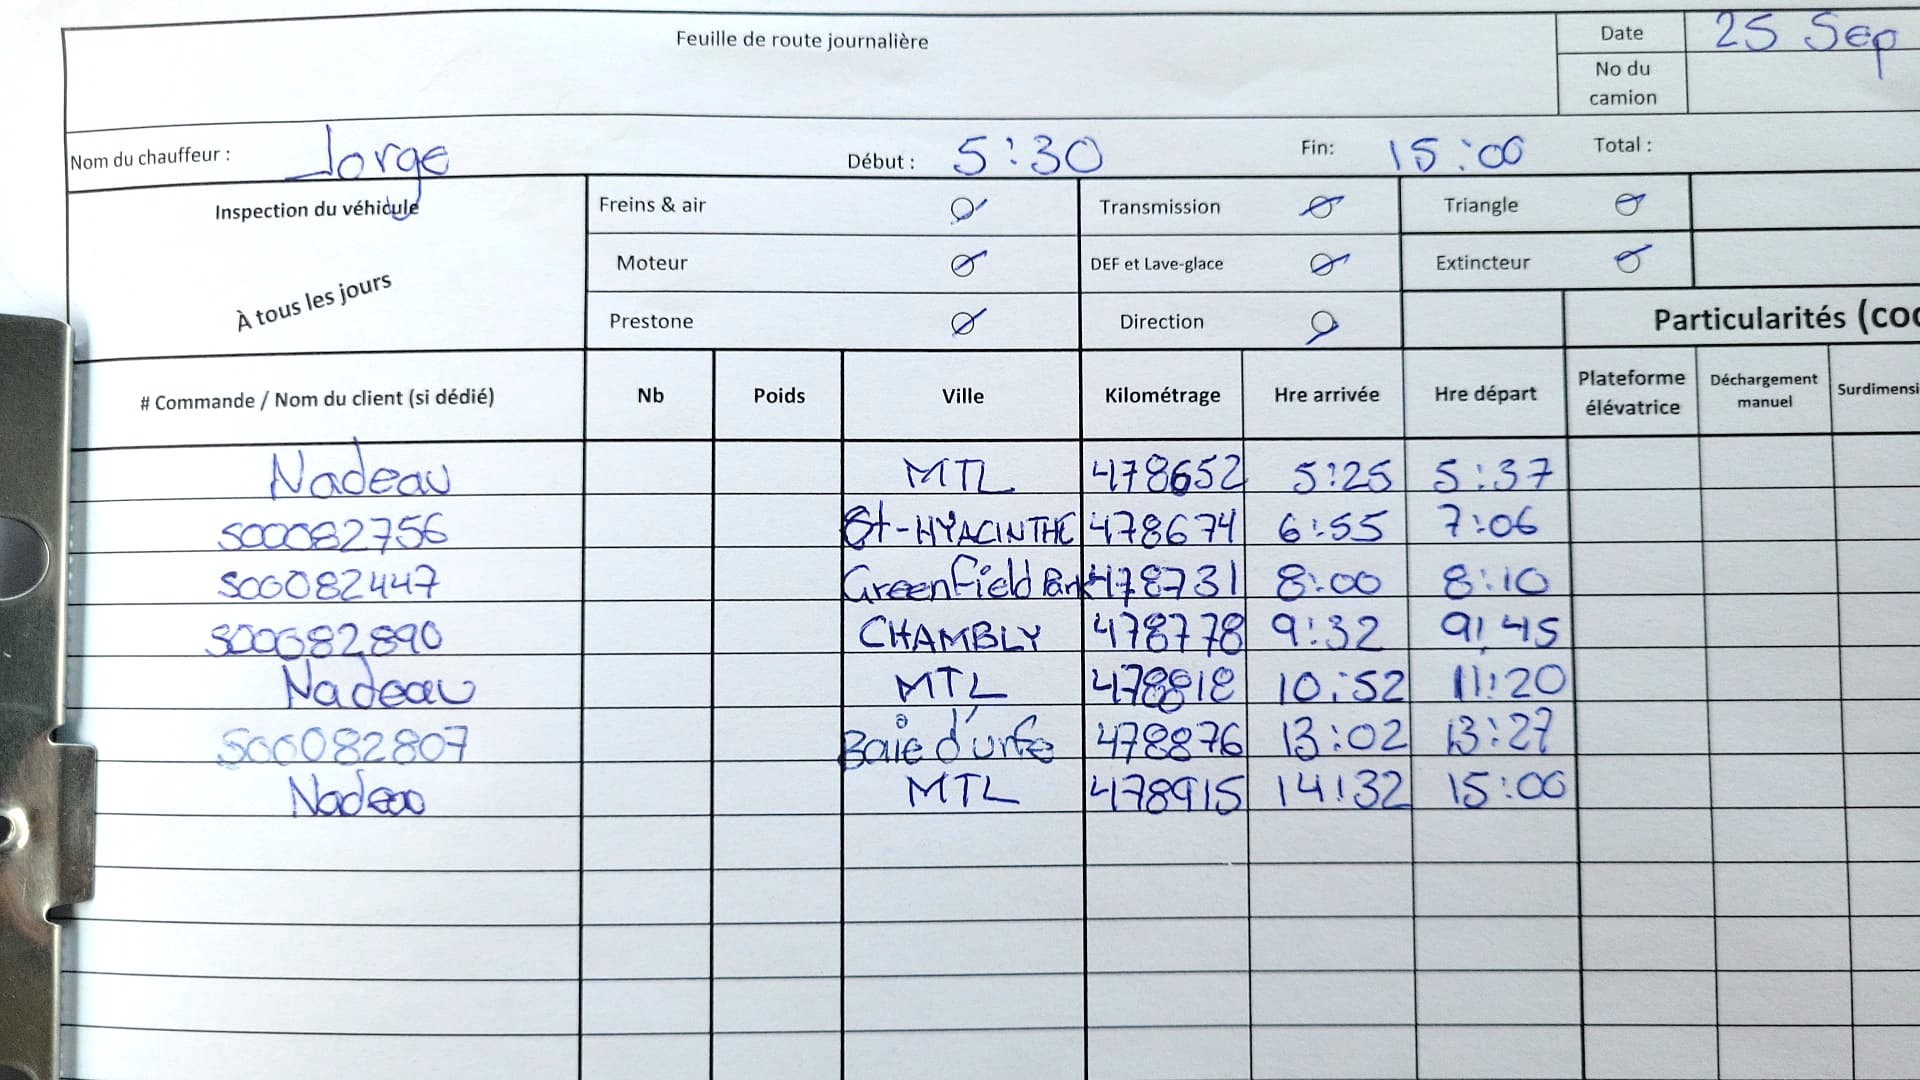 Feuille de route journalière
Date 25 Sep
No du camion
Nom du chauffeur : Jorge Début : 5:30 Fin: 15:00 Total :
Inspection du véhicule
À tous les jours
Freins & air Transmission Triangle
Moteur DEF et Lave-glace Extincteur
Prestone Direction
Particularités (coc
# Commande / Nom du client (si dédié) Nb Poids Ville Kilométrage Hre arrivée Hre départ Plateforme élévatrice Déchargement manuel Surdimensi
Nadeau MTL 478652 5:25 5:37
S00082756 St-HYACINTHE 478674 6:55 7:06
S00082447 Greenfield Park 478731 8:00 8:10
S00082890 CHAMBLY 478778 9:32 9:45
Nadeau MTL 478818 10:52 11:20
S00082807 Baie d'urfe 478876 13:02 13:27
Nadeau MTL 478915 14:32 15:00